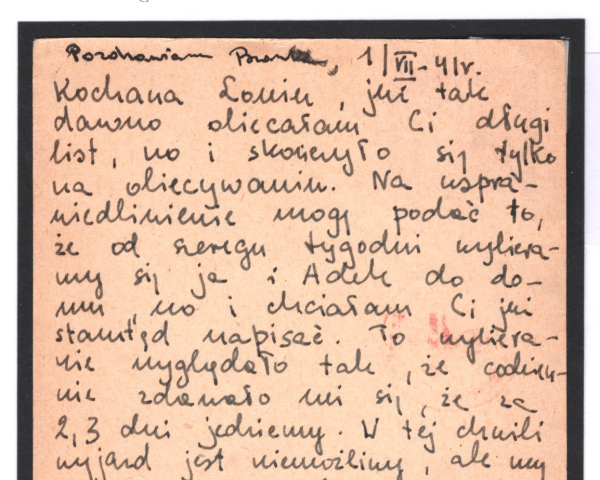 Pozdrawiam Bronka, 1/VII-41r.
Kochana Loniu, już tak
dawno obiecałam Ci długi
list, no i skończyło się tylko
na obiecywaniu. Na uspra-
wiedliwienie mogę podać to,
że od szeregu tygodni wybiera-
my się ja i Adek do do-
mu, no i chciałam Ci już
stamtąd napisać. To wybiera-
nie wyglądało tak, że codzien-
nie zdawało mi się, że za
2,3 dni jedziemy. W tej chwili
wyjazd jest niemożliwy, ale my